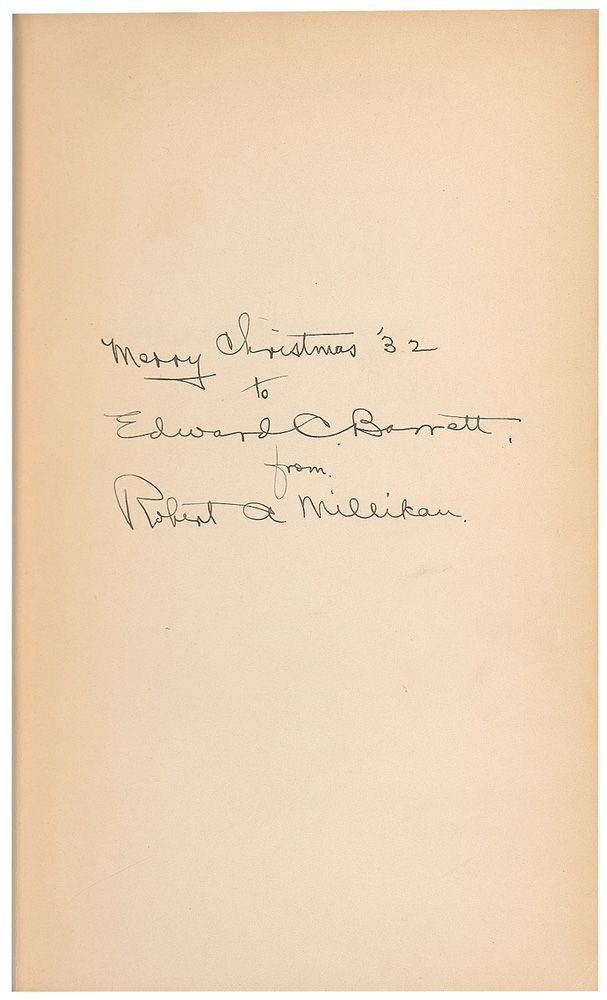 Merry Christmas '32
to
Edward C. Barrett.
from.
Robert A Millikan.